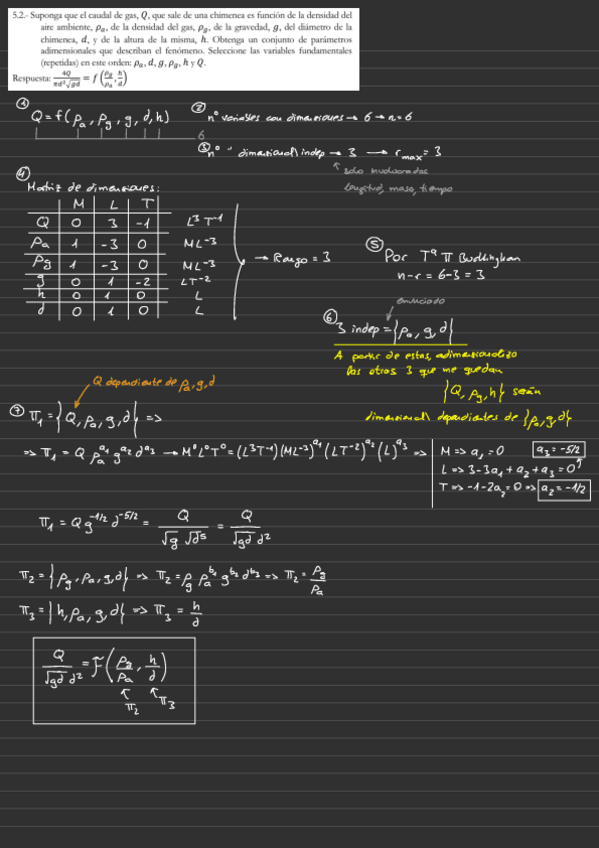 5.2.- Suponga que el caudal de gas, Q, que sale de una chimenea es función de la densidad del
aire ambiente, ρₐ, de la densidad del gas, ρ_g, de la gravedad, g, del diámetro de la
chimenea, d, y de la altura de la misma, h. Obtenga un conjunto de parámetros
adimensionales que describan el fenómeno. Seleccione las variables fundamentales
(repetidas) en este orden: ρₐ, d, g, ρ_g, h y Q.
Respuesta: 4Q/(πd²√(gd)) = f(ρ_g/ρₐ, h/d)
① Q = f(ρₐ, ρ_g, g, d, h)
6
② nº variables con dimensiones → 6 → n = 6
③ nº " dimensional indep → 3 → r_max = 3
solo involucradas
longitud, masa, tiempo
④ Matriz de dimensiones:
M L T
Q 0 3 -1 L³T⁻¹
ρₐ 1 -3 0 ML⁻³
ρ_g 1 -3 0 ML⁻³
g 0 1 -2 LT⁻²
h 0 1 0 L
d 0 1 0 L
→ Rango = 3
⑤ Por Tª π Buckingham
n-r = 6-3 = 3
enunciado
⑥ 3 indep = {ρₐ, g, d}
A partir de estas, adimensionalizo
las otras 3 que me quedan
{Q, ρ_g, h} serán
dimensional dependientes de {ρₐ, g, d}
Q dependiente de ρₐ, g, d
⑦ π₁ = {Q, ρₐ, g, d} =>
=> π₁ = Q ρₐ^a₁ g^a₂ d^a₃ → M⁰L⁰T⁰ = (L³T⁻¹)(ML⁻³)^a₁ (LT⁻²)^a₂ (L)^a₃ =>
M => a₁ = 0 a₃ = -5/2
L => 3-3a₁ + a₂ + a₃ = 0
T => -1-2a₂ = 0 => a₂ = -1/2
π₁ = Q g^(-1/2) d^(-5/2) = Q/(√g √d⁵) = Q/(√(gd) d²)
π₂ = {ρ_g, ρₐ, g, d} => π₂ = ρ_g ρₐ^b₁ g^b₂ d^b₃ => π₂ = ρ_g/ρₐ
π₃ = {h, ρₐ, g, d} => π₃ = h/d
Q/(√(gd) d²) = F(ρ_g/ρₐ, h/d)
π₂ π₃